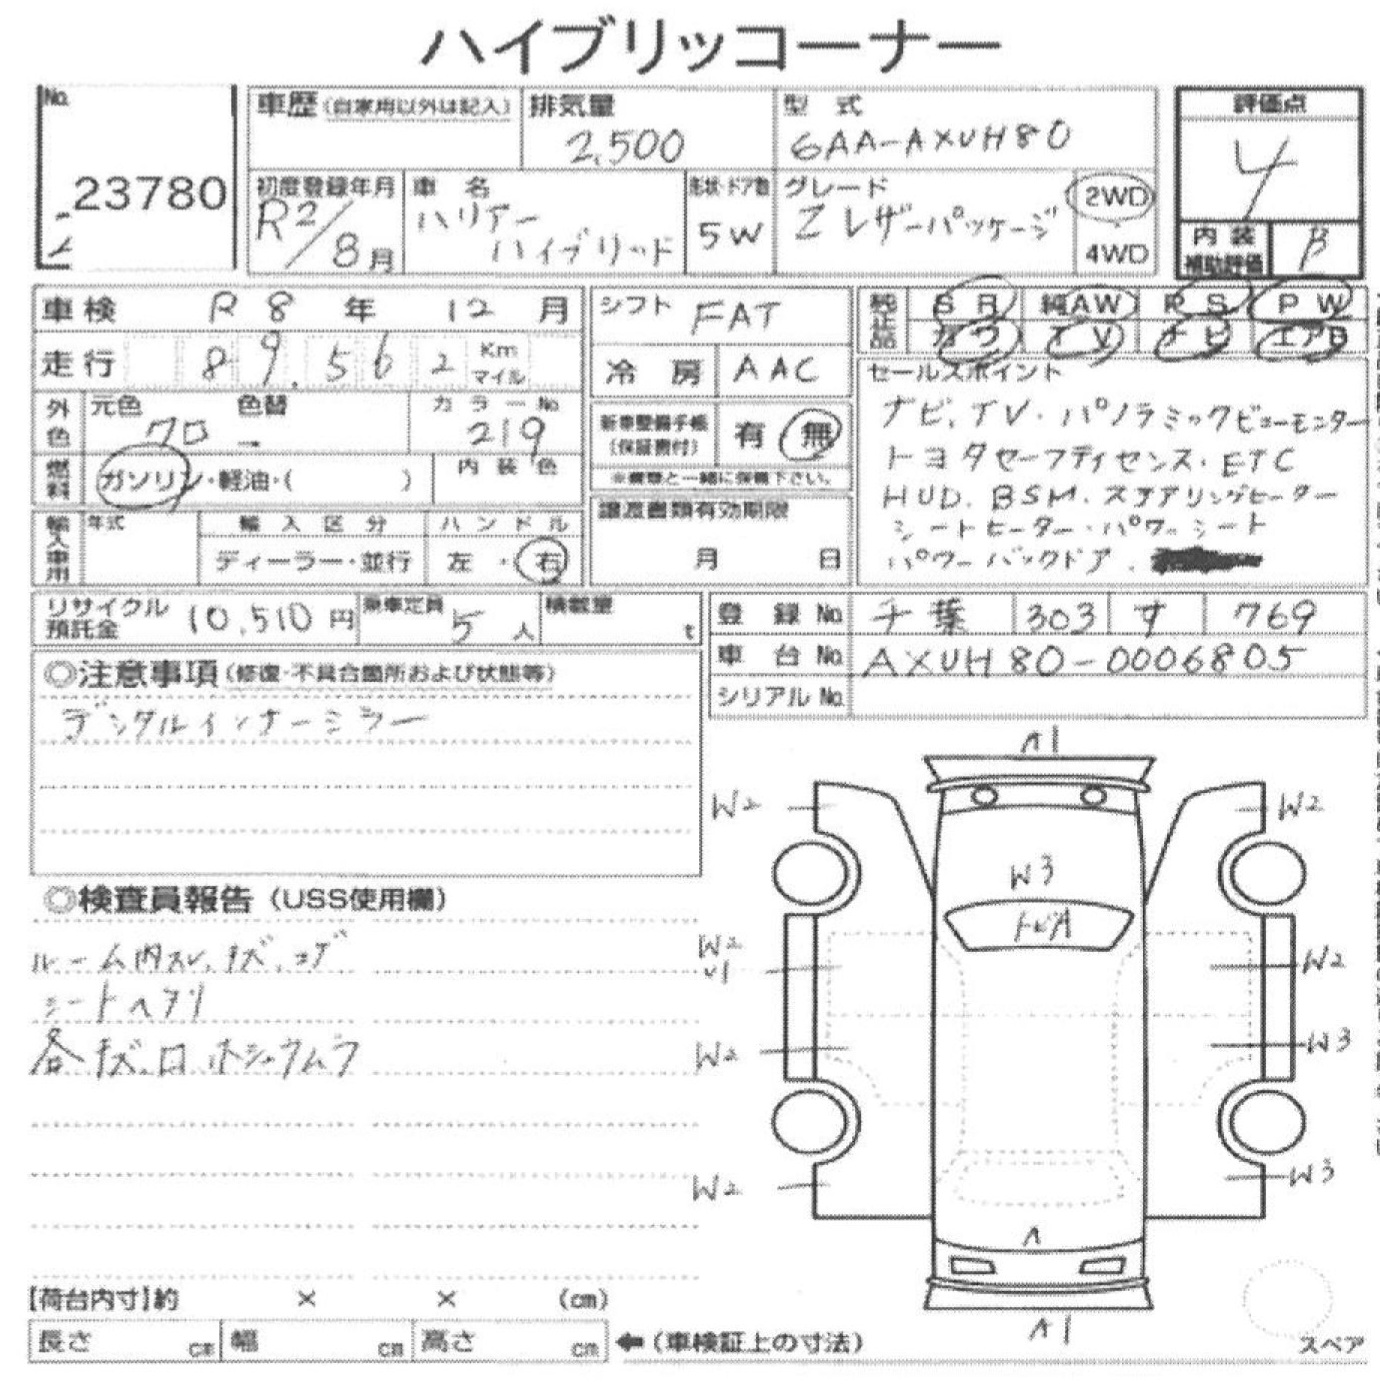 ハイブリッコーナー
No.
23780
車歴(自家用以外は記入)
排気量
2,500
型 式
6AA-AXUH80
評価点
4
初度登録年月
R2/8月
車 名
ハリアー
ハイブリッド
形状・ドア数
5W
グレード
Z レザーパッケージ
2WD
4WD
内 装
補助評価
B
車検 R 8 年 12 月
走行 89,562 Km マイル
シフト FAT
冷 房 AAC
純正品
SR 純AW PS PW
カワ TV ナビ エアB
外色
元色 クロ
色替
カラーNo. 219
燃料
ガソリン・軽油・( )
内装色
新車整備手帳
(保証書付)
有 無
※書類と一緒に保管下さい。
セールスポイント
ナビ.TV.パノラミックビューモニター
トヨタセーフティセンス.ETC
HUD.BSM.ステアリングヒーター
シートヒーター.パワーシート
パワーバックドア.
輸入車用
年式
輸入区分
ディーラー・並行
ハンドル
左・右
譲渡書類有効期限
月 日
リサイクル
預託金 10,510 円
乗車定員 5人
積載量 t
登録 No. 千葉 303 す 769
車台 No. AXUH80-0006805
シリアル No.
◎注意事項(修復・不具合箇所および状態等)
デジタルインナーミラー
◎検査員報告(USS使用欄)
ルーム内スレ.キズ.コゲ
シートヘタリ
各キズ.凹.ホシャウムラ
A1
W2
W2
W3
トビA
W2
U1
W2
W2
W3
W2
W3
A
A1
スペア
【荷台内寸】約 × × (cm)
長さ cm 幅 cm 高さ cm ←(車検証上の寸法)